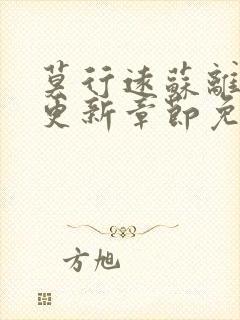 莫行遠蘇離
更新章節免
方旭